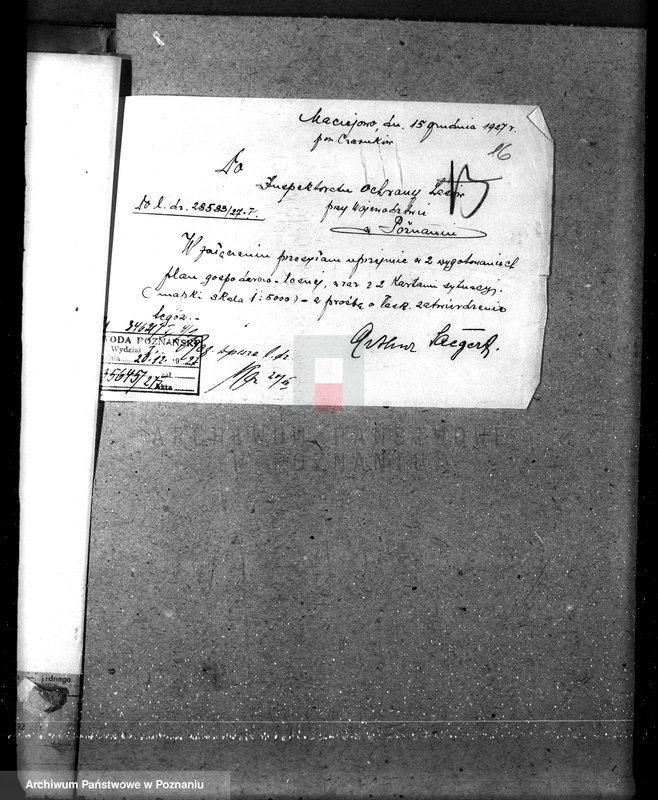 Maciejowo, dn. 15 grudnia 1927 r.
pow. Czarnków
16
Do
Inspektoratu Ochrony Lasów
przy Województwie
w Poznaniu
Do l. dz. 23533/27. I.
W załączeniu przesyłam uprzejmie w 2 wygotowaniach
plan gospodarczo-leśny, wraz z 2 kartami sytuacyj.
(mapki skala 1:5000) - z prośbą o łask. zatwierdzenie
tegóż.-
Arthur
WODA POZNAŃSKI
Wydział
20.12. 1927
5645/27
ARCHIWUM PAŃSTWOWE
W POZNANIU
jednego
Archiwum Państwowe w Poznaniu